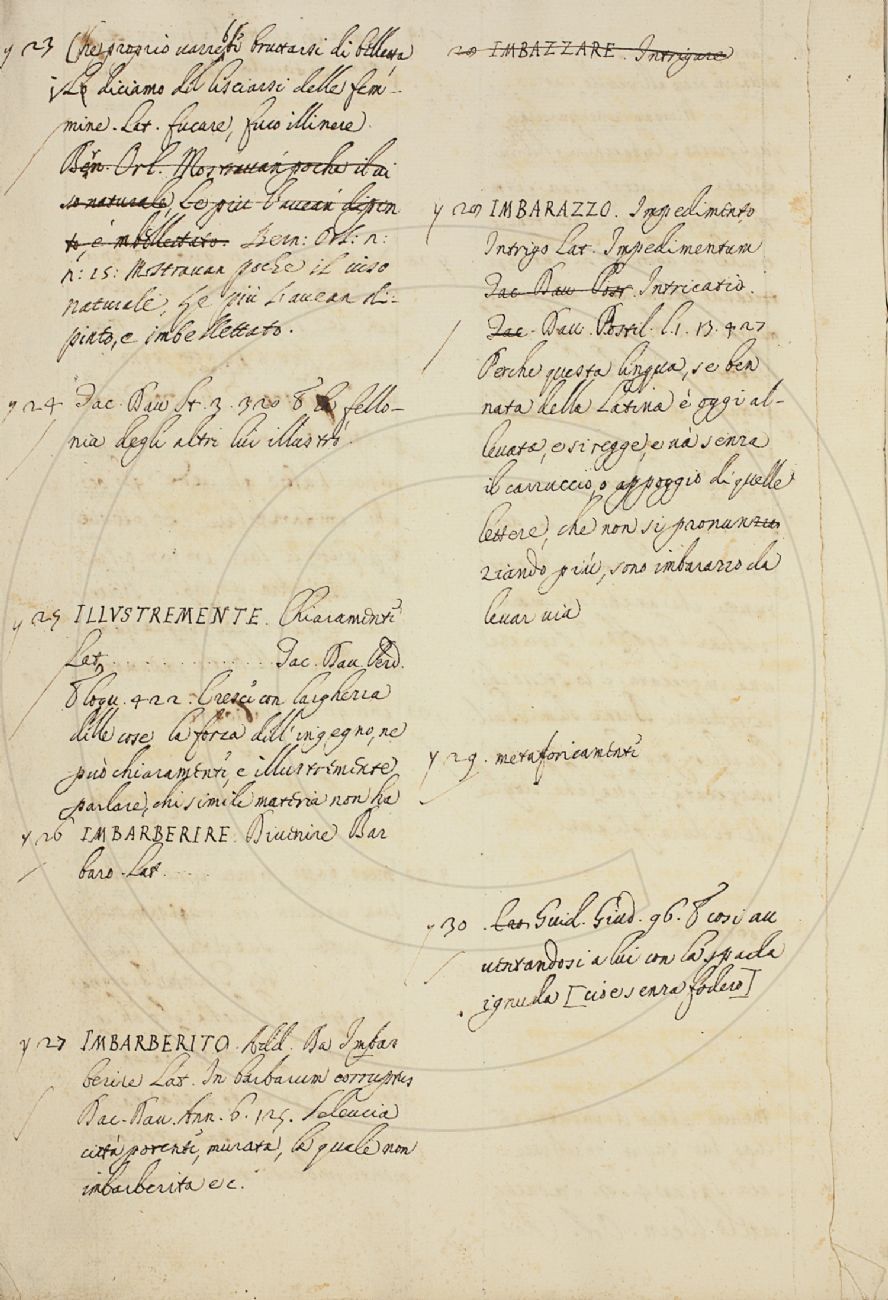 y 23 Che proprio varrebbe bruttarsi di belletta,
e Lo diciamo del lisciarsi delle fem-
mine. Lat. fucare, fuco illinere.
Bern. Orl. Mostravan poche il vi
so naturale, Le più l'avean depin
to, e imbellettato. Bern: Orl: n:
n: 15: Mostravan poche il viso
naturale, Le più l'avean di-
pinto, e imbellettato.
y 24 Tac. Dav. St. 3. 320 E la fello-
nia degli altri lui illustrò.
y 25 ILLVSTREMENTE. Chiaramente
Lat. . . . . . . . . . . . . Tac. Dav. Perd.
Eloqu. 422. Cresce con largheza
delle cose la forza dell'ingegno, ne
può chiaramente, e illustremente
parlare, chi simile materia non ha
y 26 IMBARBERIRE. Divenire Bar
baro. Lat. . . .
y 27 IMBARBERITO. Add. Da Imbar
berire Lat. In barbarum corruptus
Tac. Dav. Ann. 6. 125. Seleucia
città potente, murata, la quale non
imbarberita ec.
28 IMBAZZARE. Intrigare
y 28 IMBARAZZO. Impedimento,
Intrigo Lat. Impedimentum
Tac Dav Post. Intricatio.
Tac. Dav. Postil. l. 1. 13. 427
Perche questa lingua, se ben
nata della Latina è oggi al-
levata, e si regge, e và senza
il carruccio, o appoggio di quelle
lettere, che non si pronunzia
ziando più, sono imbarazzo da
levar via
y 29. metaforicamente
y 30 Lat. Guid. Giud. 96. E così av
ventandosi a lui con la spada
ignuda [cioè senza fodero]